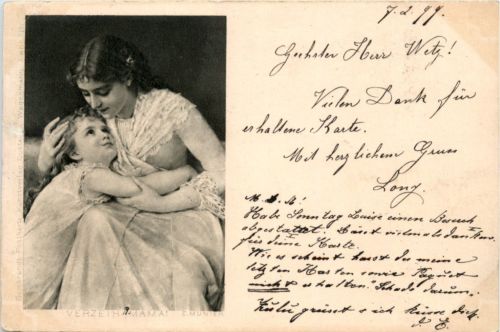 7.2.99.
Geehrter Herr Wetz!
Vielen Dank für
erhaltene Karte.
Mit herzlichem Gruss
Long.
Habe Sonntag Luise einen Besuch
abgestattet. Lässt vielmals danken
für deine Karte.
Wie es scheint hast du meine
letzten Karten sowie Paquet
nicht erhalten. Schade darum.
grüsst
VERZEIH MAMA! E.MUNIER